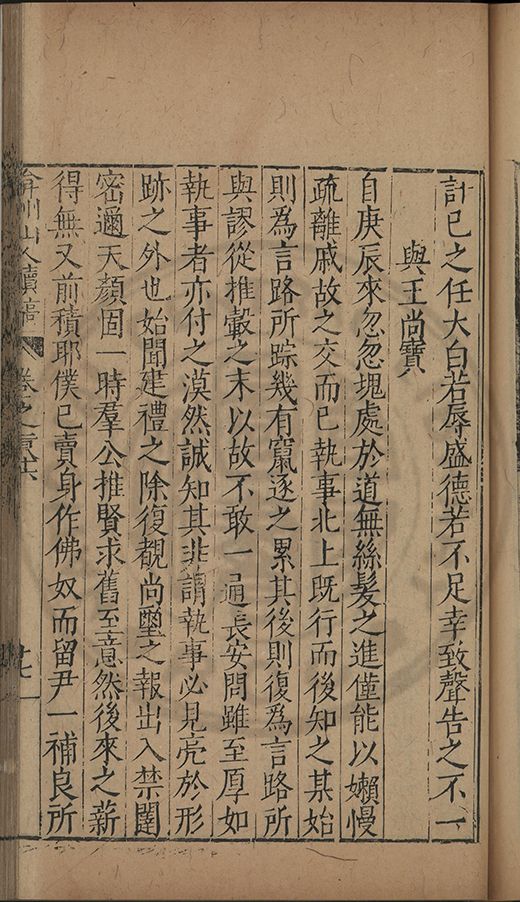 計已之任大白若辱盛德若不足幸致聲告之不一
與王尚寶
自庚辰來忽忽塊處於道無絲髮之進僅能以嬾慢
疏離戚故之交而已執事北上既行而後知之某始
則為言路所踪幾有竄逐之累其後則復為言路所
與謬從推轂之末以故不敢一通長安問雖至厚如
執事者亦付之漠然誠知其非謂執事必見亮於形
跡之外也始聞建禮之除復覩尚璽之報出入禁闥
密邇天顏固一時羣公推賢求舊至意然後來之薪
得無又前積耶僕已賣身作佛奴而留尹一補良所
弇州山人續稿 卷之